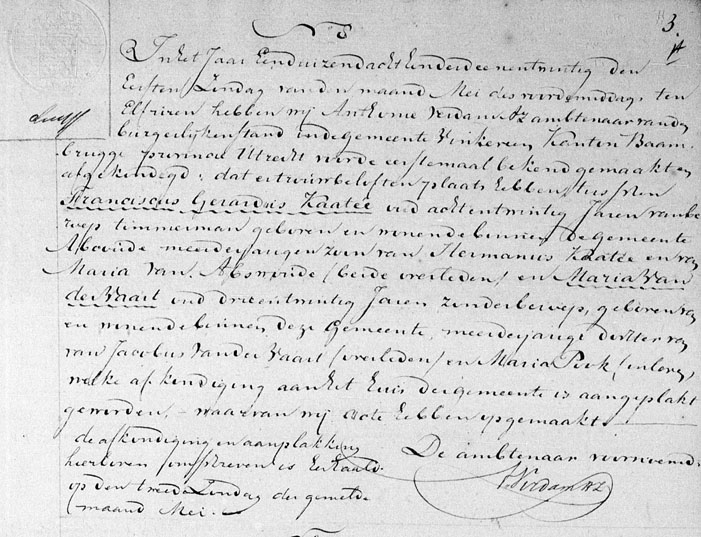 N 3
In het Jaar Eenduizend acht honderd eenentwintig den
Eersten Zondag van den maand Mei des voordemiddags ten
Elf uren hebben wij Anthonie Verdam Az ambtenaar van den
burgerlijken stand in de gemeente Vinkeveen Kanton Baam-
brugge provincie Uttrecht voorde eerstemaal bekend gemaakt en
afgekondigd; dat er trouwbeloften plaats hebben tusschen
Franciscus Gerardus Kaatée oud achtentwintig Jaren van be
roep timmerman geboren en wonende binnen de gemeente
Abcoude meerderjarigen zoon van Hermanus Kaatée en van
Maria van Abswoude (beide overleden) en Maria Van
der Vaart oud drieentwintig Jaren zonder beroep, geboren
en wonende binnen deze Gemeente, meerderjarige dochter van
van Jacobus Van der Vaart (overleden) en Maria Piek (in leven)
welke afkondiging aan het huis der gemeente is aangeplakt
geworden, - waarvan wij acte hebben opgemaakt
de afkondiging en aanplakking
hierboven omschreven is herhaald
op den tweede Zondag der gemelde
maand Mei. -
De ambtenaar voornoemd
A Verdam Az